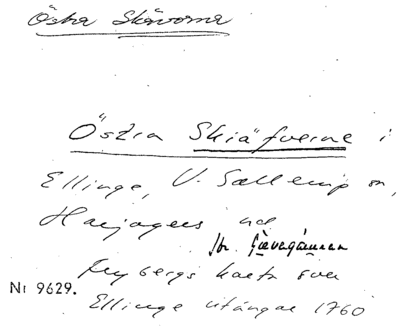 Östra Skävorna
Östra Skiäfverne i
Ellinge, V. Sallerup sn,
Harjagers hd
Nr 9629.
Rybergs karta över
Ellinge utängar 1760